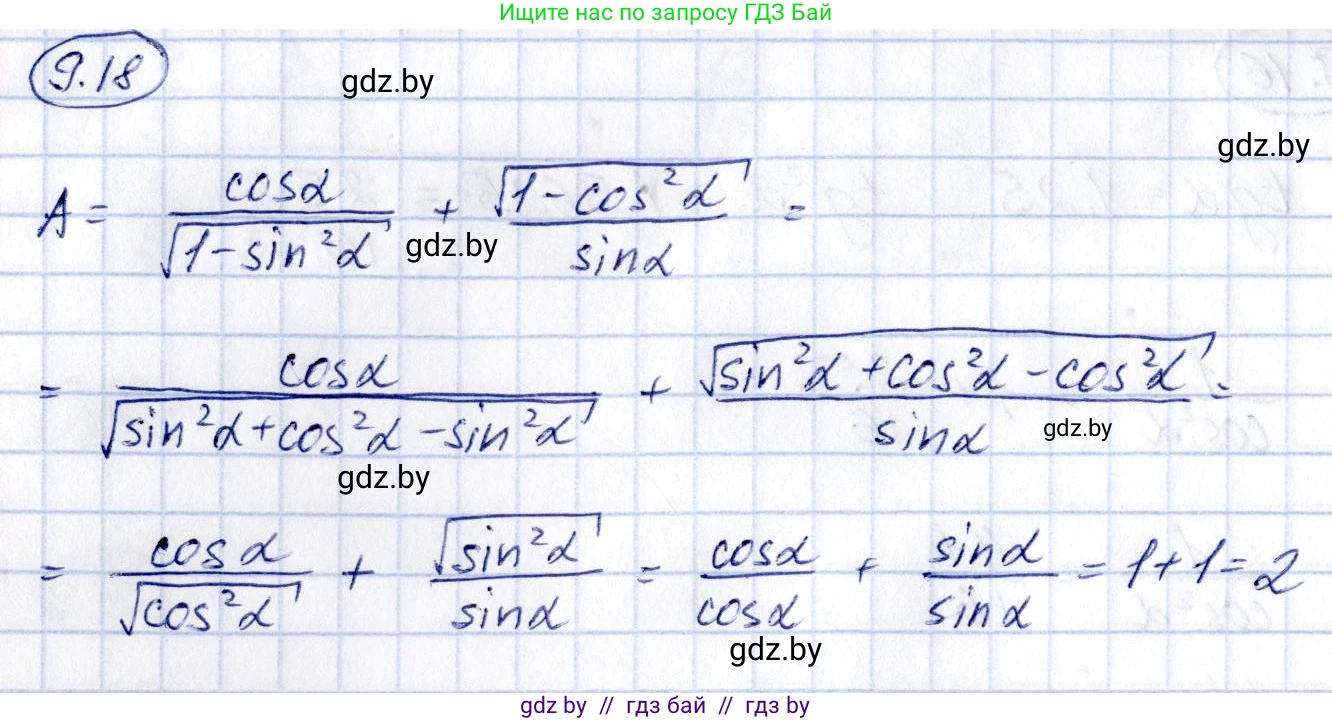 Ищите нас по запросу ГДЗ Бай
9.18
gdz.by
gdz.by
A = cosα / √(1-sin²α) + √(1-cos²α) / sinα =
gdz.by
= cosα / √(sin²α+cos²α-sin²α) + √(sin²α+cos²α-cos²α) / sinα =
gdz.by
gdz.by
= cosα / √(cos²α) + √(sin²α) / sinα = cosα / cosα + sinα / sinα = 1+1=2
gdz.by
gdz by // гдз бай // гдз by